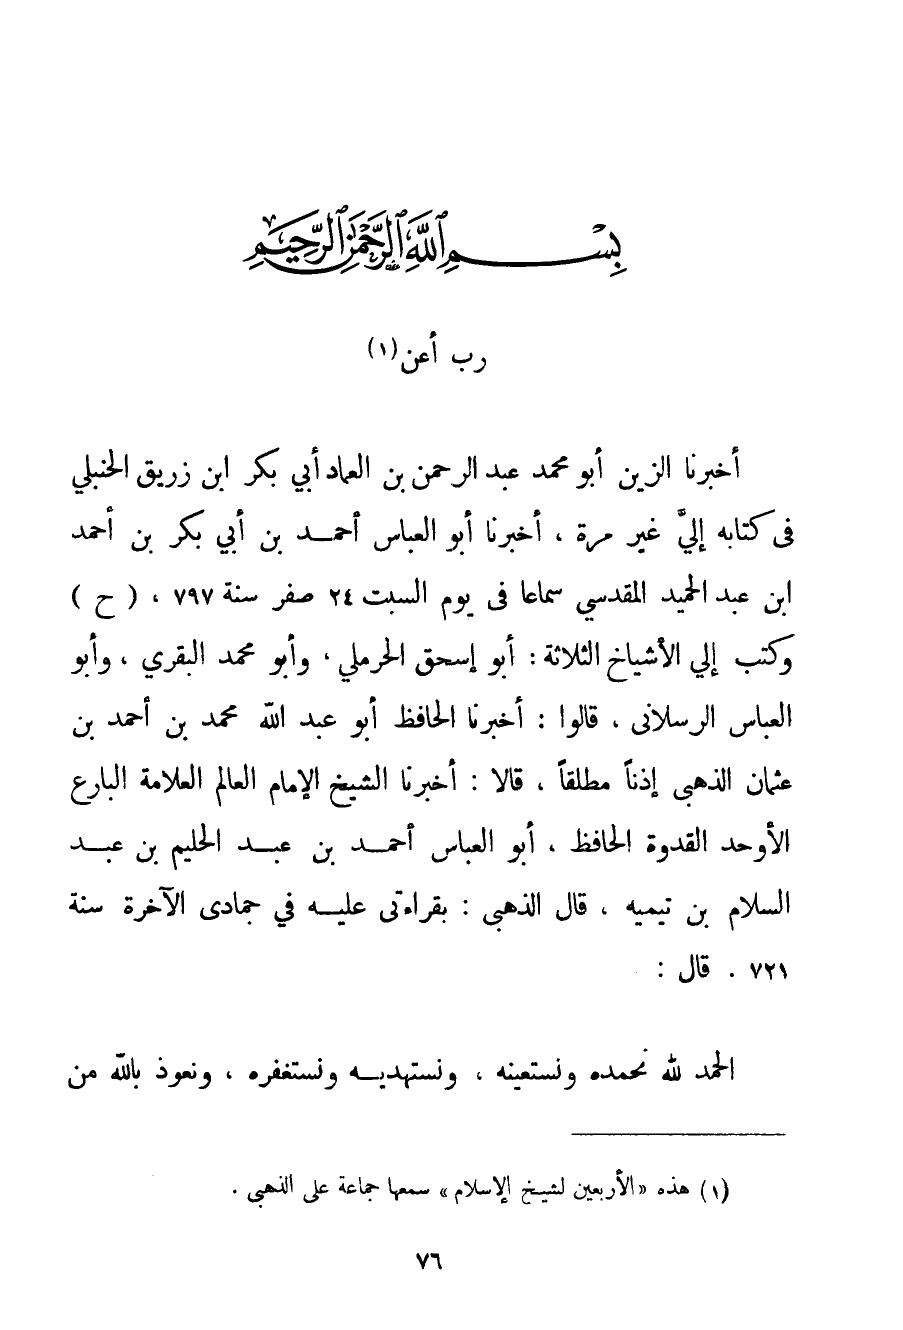 بسم الله الرحمن الرحيم
رب أعن (١)
أخبرنا الزين أبو محمد عبد الرحمن بن العماد أبي بكر ابن زريق الحنبلي
فى كتابه إليَّ غير مرة ، أخبرنا أبو العباس أحمد بن أبي بكر بن أحمد
ابن عبد الحميد المقدسي سماعا فى يوم السبت ٢٤ صفر سنة ٧٩٧ ، ( ح )
وكتب إلي الأشياخ الثلاثة : أبو إسحق الحرملي ، وأبو محمد البقري ، وأبو
العباس الرسلانى ، قالوا : أخبرنا الحافظ أبو عبد الله محمد بن أحمد بن
عثمان الذهبى إذناً مطلقاً ، قالا : أخبرنا الشيخ الإمام العالم العلامة البارع
الأوحد القدوة الحافظ ، أبو العباس أحمد بن عبد الحليم بن عبد
السلام بن تيميه ، قال الذهبى : بقراءتى عليه في جمادى الآخرة سنة
٧٢١ . قال :
الحمد لله نحمده ونستعينه ، ونستهديه ونستغفره ، ونعوذ بالله من
(١) هذه «الأربعين لشيخ الإسلام» سمعها جماعة على الذهبي .
٧٦